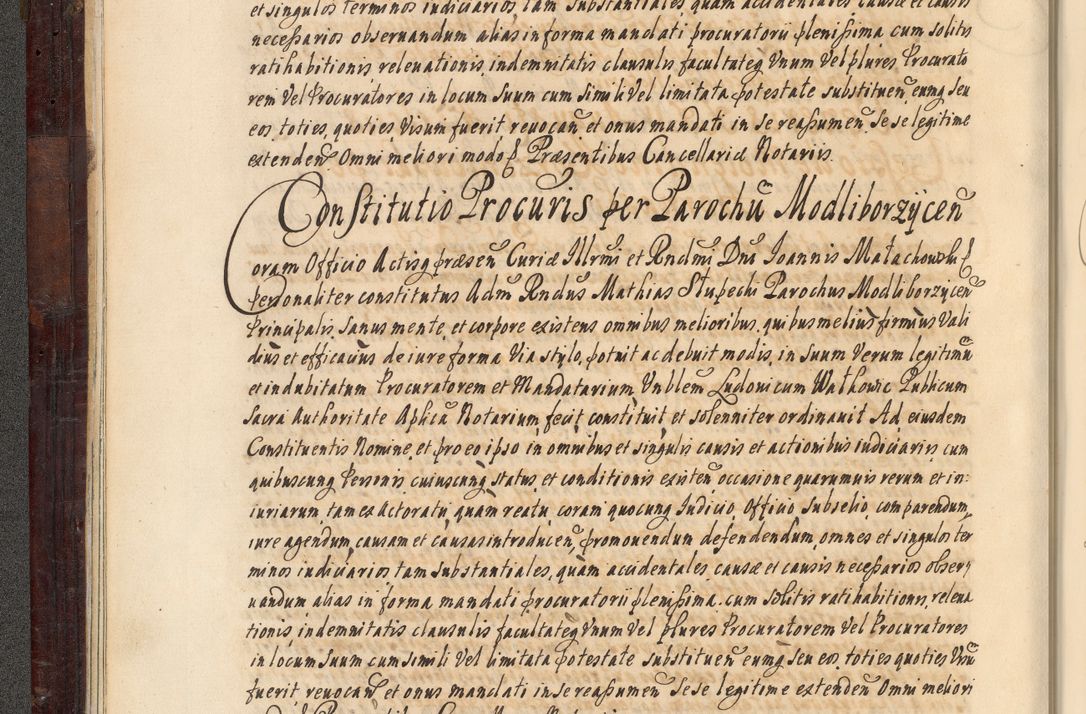 et singulos terminos iudiciarios, tam substantiales quam accidentales causæ et causis
necessarios observandum alias in forma mandati procuratorii plenissima cum solitis
ratihabitionis relevationis, indemnitatis clausulis facultateq Vnum Vel plures Procurato
rem Vel Procuratores in locum Suum cum Simili Vel limitata potestate substituen, eumq seu
eos, toties, quoties Visum fuerit, revocan et onus mandati in se reassumen, Se se legitime
extenden Omni meliori modo p Præsentibus Cancellariæ Notariis.
Constitutio Procuris per Parochū Modliborzÿcen
Coram Officio Actisq præsen Curiæ Illrmi et Rndmi Dni Ioannis Małachowski p
personaliter constitutus Admˢ Rndus Mathias Słupecki Parochus Modliborzÿcen
Principalis Sanus mente, et corpore existens omnibus melioribus, quibus melius firmius Vali
dius et efficacius de iure forma Via stylo, potuit ac debuit modis, in Suum Verum legitimū
et indubitatum Procuratorem et Mandatarium Vnblem Ludovicum Wałkowic Publicum
Sacra Authoritate Aplicā Notarium, fecit constituit et solenniter ordinavit Ad eiusdem
Constituentis Nomine, et pro eo ipso in omnibus et singulis causis et actionibus iudiciariis, cum
quibuscunq Personis cuiuscunq status et conditionis existen occasione quarumuis rerum et in:
iuriarum, tam ex Actoratu, quam reatu, coram quocunq Iudicio, Officio Subselio, comparendum,
iure agendum, causam et causas introducen, promovendum defendendum, omnes et singulos ter
minos iudiciarios tam Substantiales, quam accidentales, causæ et causis necessarios obser,
uandum alias in forma mandati procuratorii plenissima, cum Solitis ratihabitionis, releua
tionis, indemnitatis clausulis facultateq Vnum Vel plures Procuratorem Vel Procuratores
in locum Suum cum simili Vel limitata potestate substituen eumq seu eos, toties quoties Visū
fuerit revocan et onus mandati in se reassumen Se se legitime extenden Omni meliori